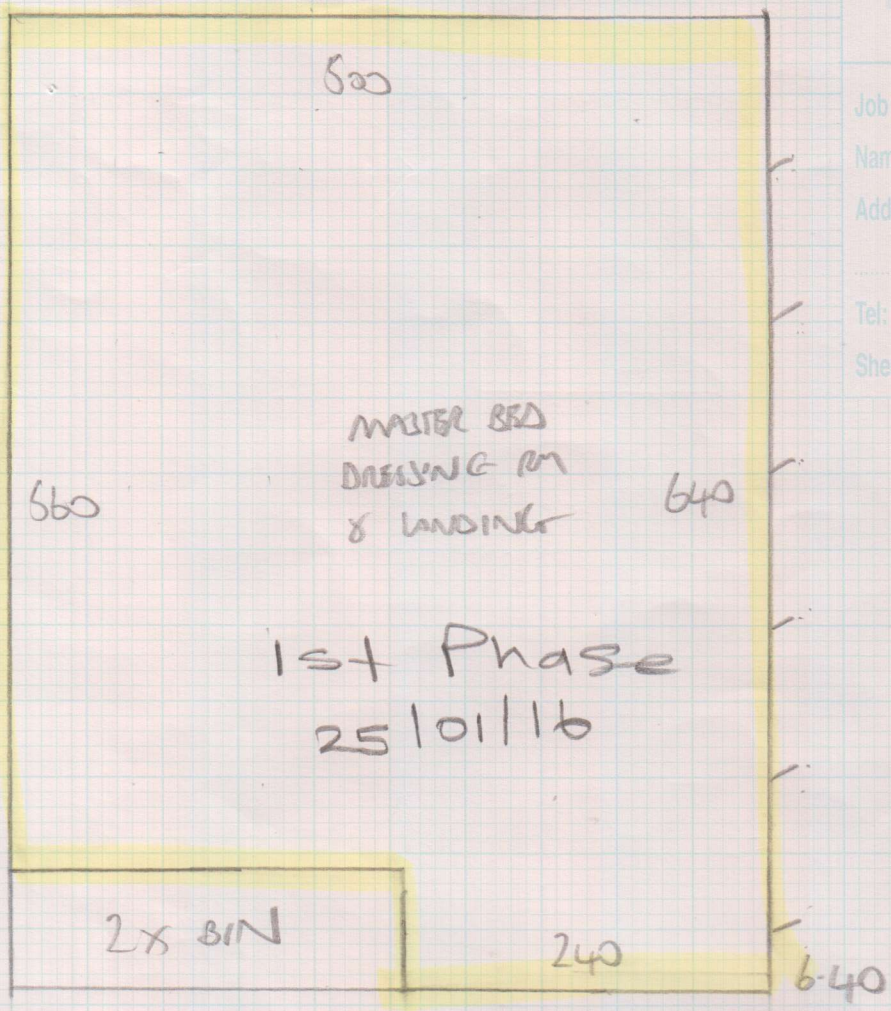 500
Job
Nam
Add
Tel:
She
MASTER BED
DRESSING RM
& LANDING
560
640
1st Phase
25/01/16
2x BIN
240
6.40